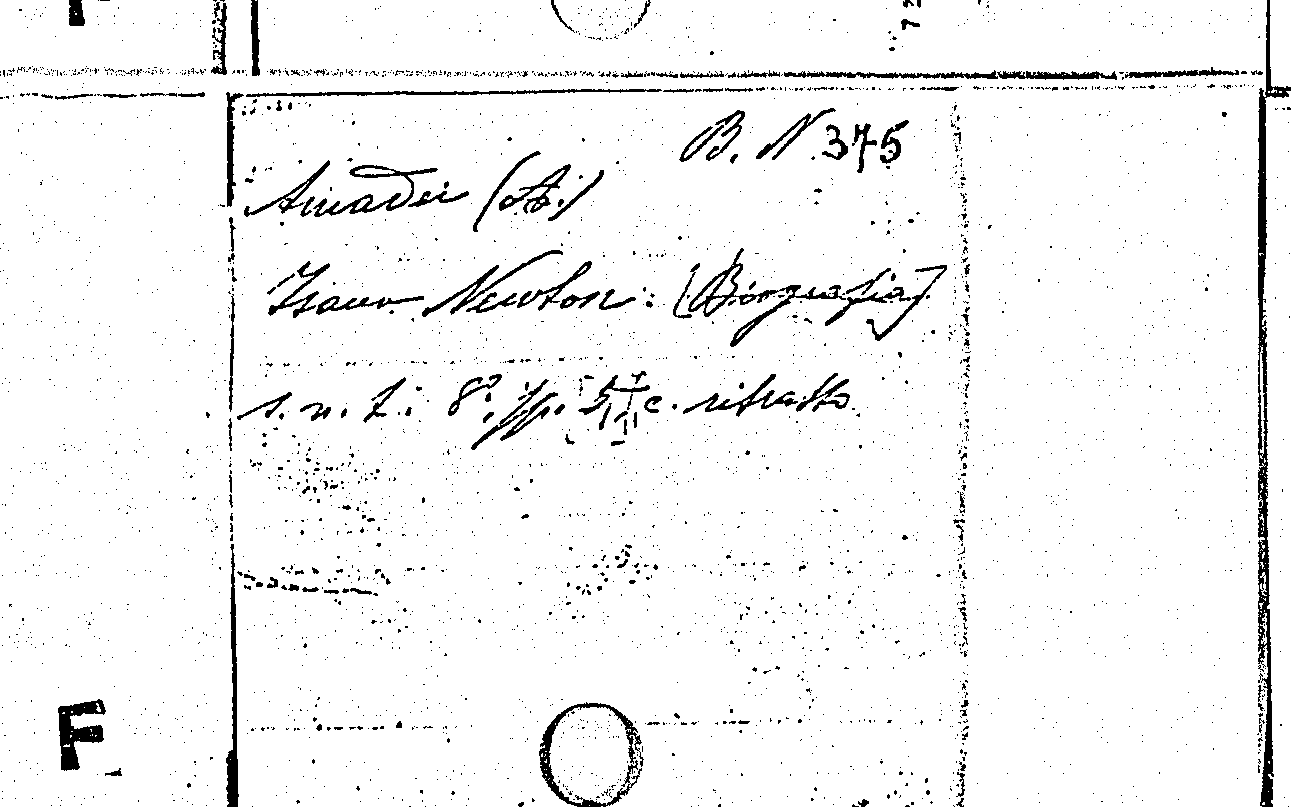 B. N. 375
Amadei (A.)
Isacco Newton: [Biografia]
s. n. t. 8º. pp. c. ritratto.
F